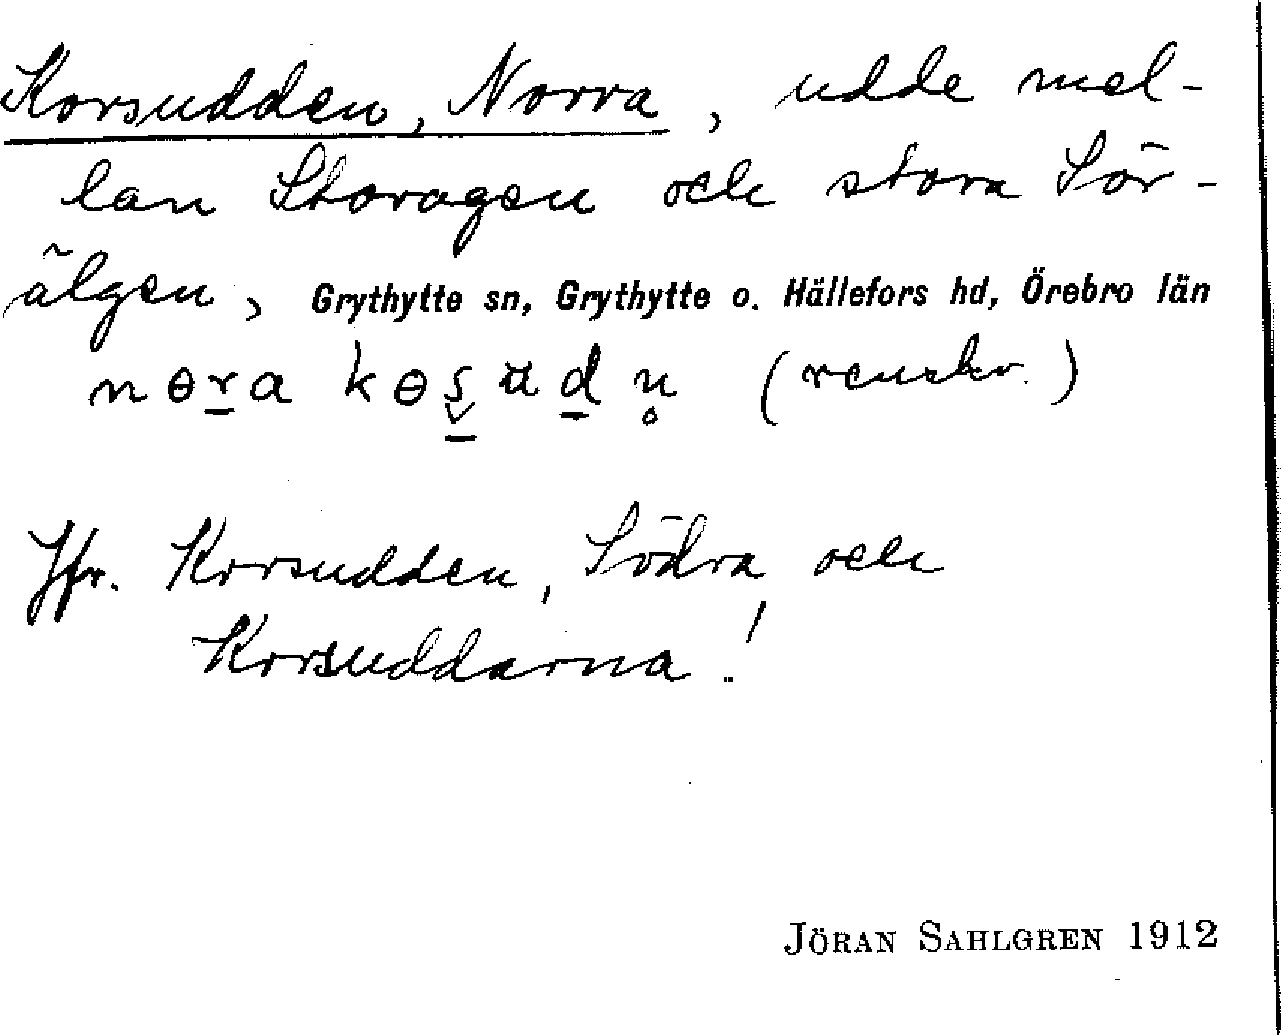 Korsudden, Norra, udde mel-
lan Storagen och stora Sör-
älgen, Grythytte sn, Grythytte o. Hällefors hd, Örebro län
nɵra kɵs̬ud n̥ (renskr.)
Jfr. Korsudden, Södra och
Korsuddarna!
JÖRAN SAHLGREN 1912